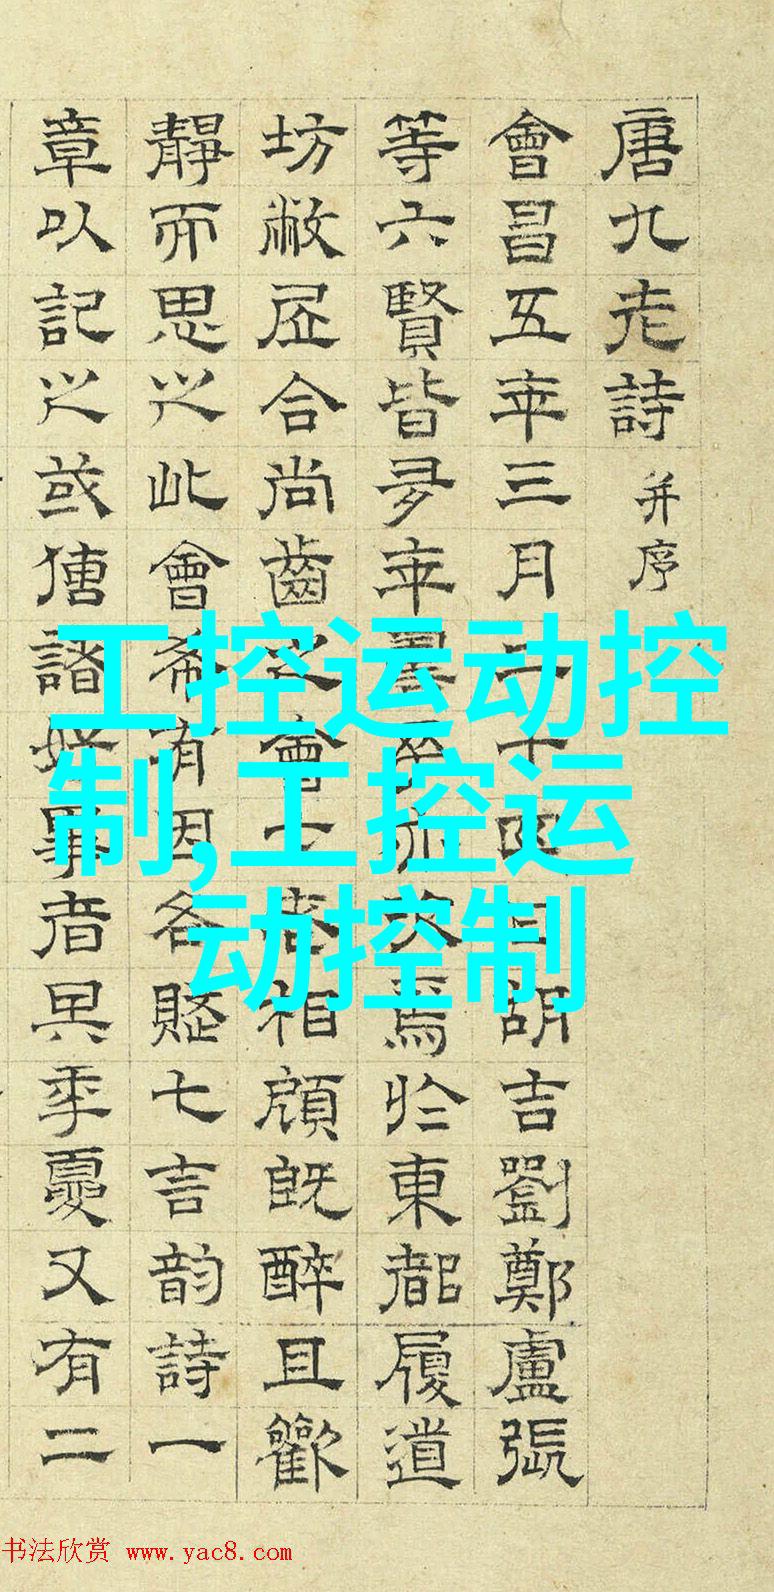 唐九老詩 并序
會昌五年三月二十四日胡吉劉鄭盧張
等六賢皆多年壽予亦次焉於東都履道
坊敝居合尚齒之會七老相顧既醉且歡
靜而思之此會希有因各賦七言韵詩一
章以記之或傳諸好事者其年夏又有二
工控运动控
制,工控运
动控制
书法欣赏 www.yac8.com